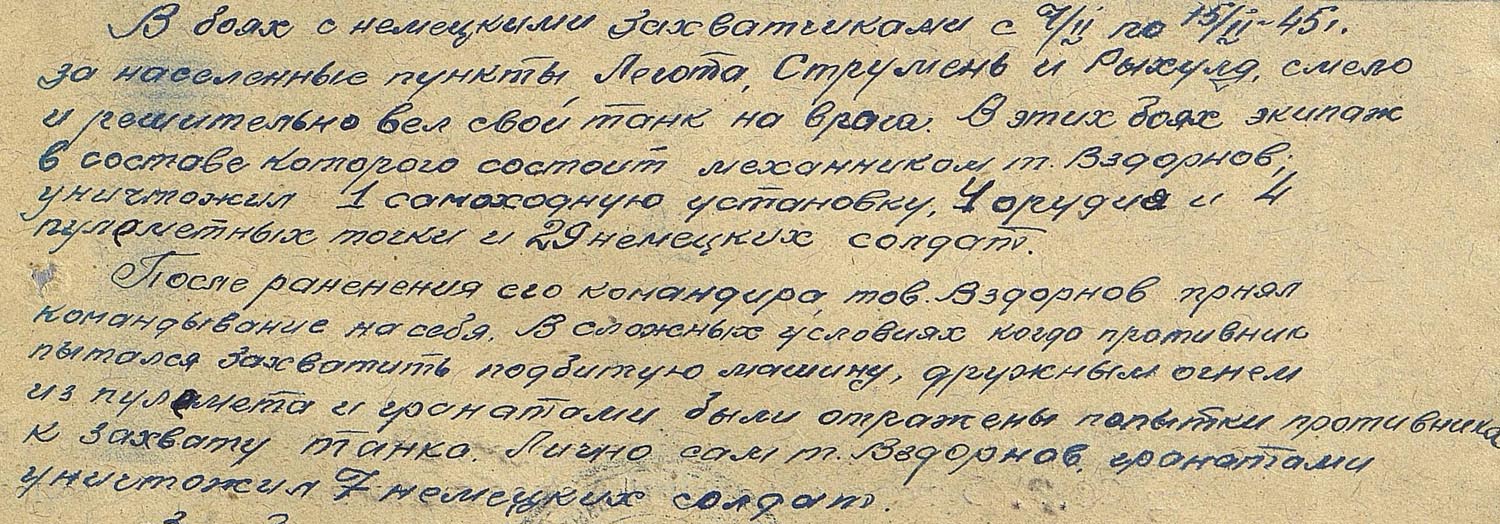 В боях с немецкими захватчиками с 7/II по 15/II-45г.
за населенные пункты, Легота, Струмень и Рыхулд, смело
и решительно вел свой танк на врага. В этих боях экипаж
в составе которого состоит механником т. Вздорнов,
уничтожил 1 самоходную установку, 4 орудия и 4
пулеметных точки и 29 немецких солдат.
После раненения его командира, тов. Вздорнов прнял
командывание на себя. В сложных условиях когда противник
пытался захватить подбитую машину, дружным огнем
из пулемета и гранатами были отражены попытки противника
к захвату танка. Лично сам т. Вздорнов, гранатами
уничтожил 7 немецких солдат.